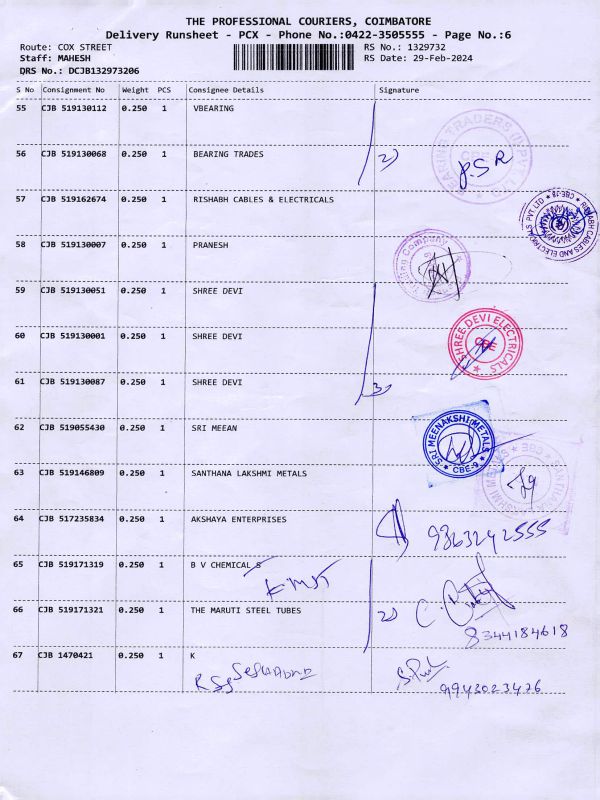 THE PROFESSIONAL COURIERS, COIMBATORE
Delivery Runsheet - PCX - Phone No.:0422-3505555 - Page No.:6
Route: COX STREET RS No.: 1329732
Staff: MAHESH RS Date: 29-Feb-2024
DRS No.: DCJB132973206
S No Consignment No Weight PCS Consignee Details Signature
55 CJB 519130112 0.250 1 VBEARING
56 CJB 519130068 0.250 1 BEARING TRADES 2) P.S.R
57 CJB 519162674 0.250 1 RISHABH CABLES & ELECTRICALS
RISHABH CABLES AND ELECTRICALS PVT LTD * CBE-18 *
58 CJB 519130007 0.250 1 PRANESH
Trading Company
59 CJB 519130051 0.250 1 SHREE DEVI
60 CJB 519130001 0.250 1 SHREE DEVI
SHREE DEVI ELECTRICALS
CBE
61 CJB 519130087 0.250 1 SHREE DEVI 3)
62 CJB 519055430 0.250 1 SRI MEEAN
SRI MEENAKSHI METALS
* CBE-9 *
63 CJB 519146809 0.250 1 SANTHANA LAKSHMI METALS
64 CJB 517235834 0.250 1 AKSHAYA ENTERPRISES 9363242555
65 CJB 519171319 0.250 1 B V CHEMICAL S
66 CJB 519171321 0.250 1 THE MARUTI STEEL TUBES 2)
8344184618
67 CJB 1470421 0.250 1 K
9943023476